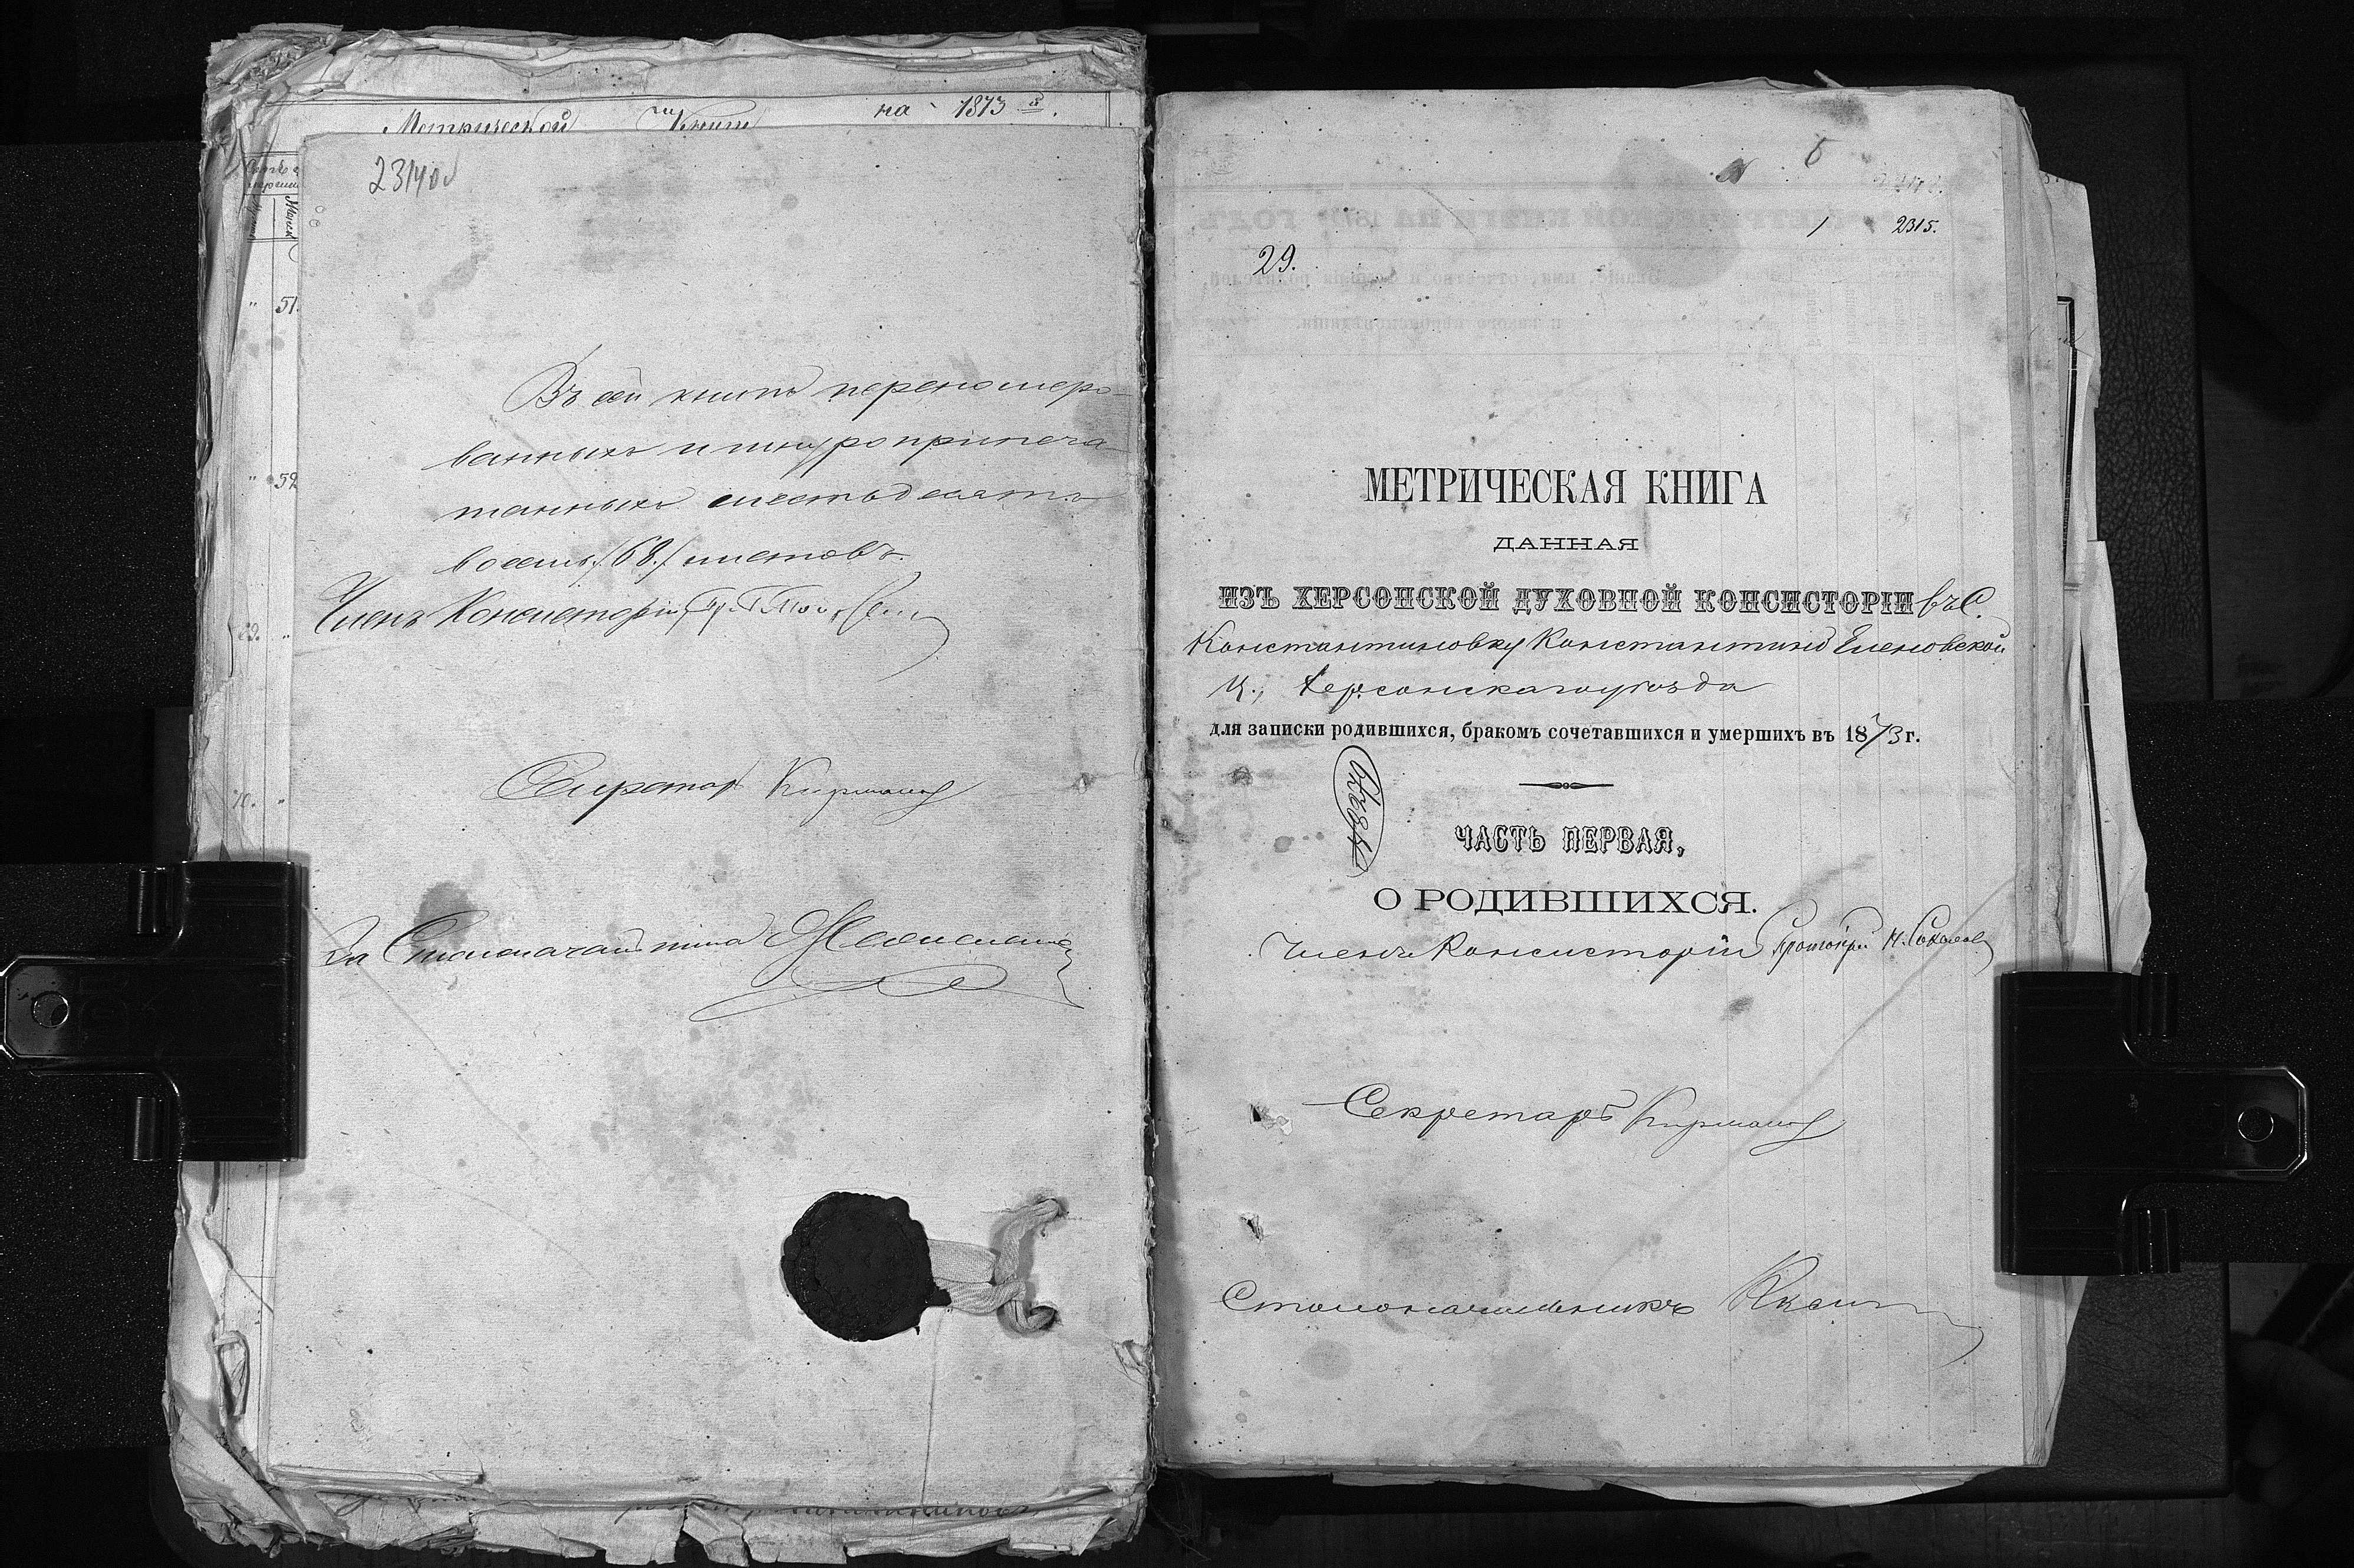 Метрической Книги на 1873 й.
2314об
51.
52
Въ сей книгѣ переномеро-
ванныхъ и шнуроприпеча-
танныхъ шестьдесятъ
восемь /68./ листовъ.
Членъ Консисторіи
Секретарь Кирианов
За Столоначальника
6
1 2315.
29.
МЕТРИЧЕСКАЯ КНИГА
ДАННАЯ
ИЗЪ ХЕРСОНСКОЙ ДУХОВНОЙ КОНСИСТОРІИ въ С.
Константиновку Константино Еленовской
Ц., Херсонскаго уѣзда
для записки родившихся, бракомъ сочетавшихся и умершихъ въ 1873 г.
ЧАСТЬ ПЕРВАЯ,
О РОДИВШИХСЯ.
Членъ Консисторіи Протоіерей Н. Соколов
Секретарь Кирианов
Столоначальникъ